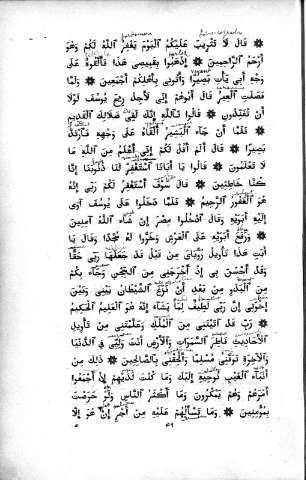 ❁ قَالَ لَا تَثْرِيبَ عَلَيْكُمُ ٱلْيَوْمَ يَغْفِرُ ٱللَّهُ لَكُمْ وَهُوَ
أَرْحَمُ ٱلرَّاحِمِينَ ❁ إِذْهَبُوا بِقَمِيصِى هَذَا فَأَلْقُوهُ عَلَى
وَجْهِ أَبِى يَأْتِ بَصِيرًا وَأْتُونِى بِأَهْلِكُمْ أَجْمَعِينَ ❁ وَلَمَّا
فَصَلَتِ ٱلْعِيرُ قَالَ أَبُوهُمْ إِنِّى لَأَجِدُ رِيحَ يُوسُفَ لَوْلَا
أَنْ تُفَنِّدُونِ ❁ قَالُوا تَٱللَّهِ إِنَّكَ لَفِى ضَلَالِكَ ٱلْقَدِيمِ
❁ فَلَمَّا أَنْ جَآءَ ٱلْبَشِيرُ أَلْقَاهُ عَلَى وَجْهِهِ فَٱرْتَدَّ
بَصِيرًا ❁ قَالَ أَلَمْ أَقُلْ لَكُمْ إِنِّى أَعْلَمُ مِنَ ٱللَّهِ مَا
لَا تَعْلَمُونَ ❁ قَالُوا يَا أَبَانَا ٱسْتَغْفِرْ لَنَا ذُنُوبَنَا إِنَّا
كُنَّا خَاطِئِينَ ❁ قَالَ سَوْفَ أَسْتَغْفِرُ لَكُمْ رَبِّى إِنَّهُ
هُوَ ٱلْغَفُورُ ٱلرَّحِيمُ ❁ فَلَمَّا دَخَلُوا عَلَى يُوسُفَ آوَى
إِلَيْهِ أَبَوَيْهِ وَقَالَ ٱدْخُلُوا مِصْرَ إِنْ شَآءَ ٱللَّهُ آمِنِينَ
❁ وَرَفَعَ أَبَوَيْهِ عَلَى ٱلْعَرْشِ وَخَرُّوا لَهُ سُجَّدًا وَقَالَ يَا
أَبَتِ هَذَا تَأْوِيلُ رُؤْيَاىَ مِنْ قَبْلُ قَدْ جَعَلَهَا رَبِّى حَقًّا
وَقَدْ أَحْسَنَ بِى إِذْ أَخْرَجَنِى مِنَ ٱلسِّجْنِ وَجَآءَ بِكُمْ
مِنَ ٱلْبَدْوِ مِنْ بَعْدِ أَنْ نَزَغَ ٱلشَّيْطَانُ بَيْنِى وَبَيْنَ
إِخْوَتِى إِنَّ رَبِّى لَطِيفٌ لِمَا يَشَآءُ إِنَّهُ هُوَ ٱلْعَلِيمُ ٱلْحَكِيمُ
❁ رَبِّ قَدْ آتَيْتَنِى مِنَ ٱلْمُلْكِ وَعَلَّمْتَنِى مِنْ تَأْوِيلِ
ٱلْأَحَادِيثِ فَاطِرَ ٱلسَّمَوَاتِ وَٱلْأَرْضِ أَنْتَ وَلِيِّى فِى ٱلدُّنْيَا
وَٱلْآخِرَةِ تَوَفَّنِى مُسْلِمًا وَأَلْحِقْنِى بِٱلصَّالِحِينَ ❁ ذَلِكَ مِنْ
أَنْبَآءِ ٱلْغَيْبِ نُوحِيهِ إِلَيْكَ وَمَا كُنْتَ لَدَيْهِمْ إِذْ أَجْمَعُوا
أَمْرَهُمْ وَهُمْ يَمْكُرُونَ ❁ وَمَا أَكْثَرُ ٱلنَّاسِ وَلَوْ حَرَصْتَ
بِمُؤْمِنِينَ ❁ وَمَا تَسْأَلُهُمْ عَلَيْهِ مِنْ أَجْرٍ إِنْ هُوَ إِلَّا